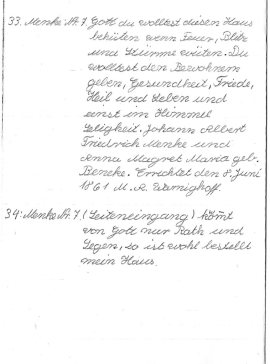 33. Menke Nr. 7. Gott du wolltest diesen Haus
behüten wenn Feuer, Blitz
und Stürme wüten. Du
wolltest den Bewohnern
geben, Gesundheit, Friede,
Heil und Leben und
einst im Himmel
Seligkeit. Johann Albert
Friedrich Menke und
Anna Magret Maria geb.
Beneke. Errichtet den 8. Juni
1861 M. R. Warnighoff.
34. Menke Nr. 7. (Seiteneingang) kom̄t
von Gott nur Rath und
Segen, so ist wohl bestellt
mein Haus.